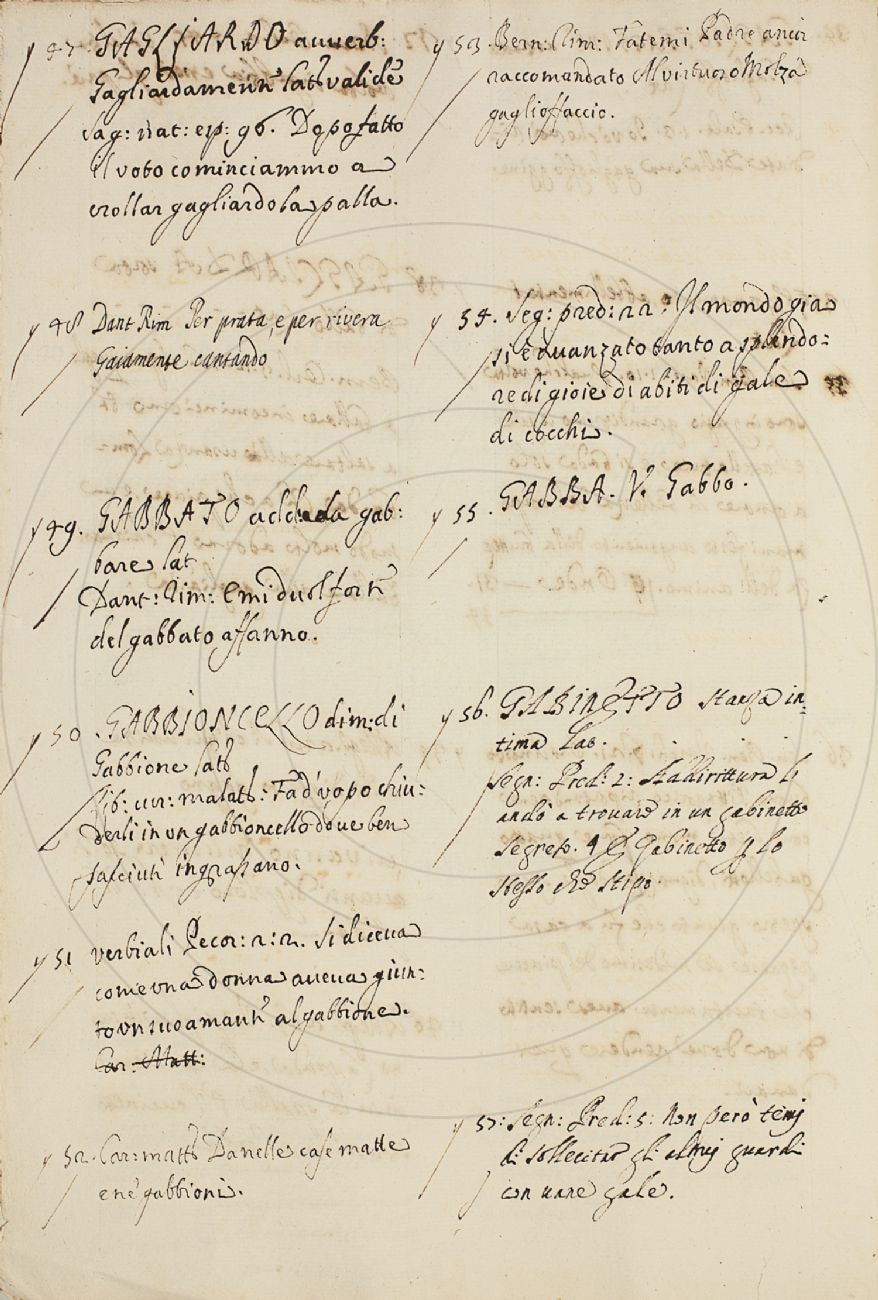 47. GAGLIARDO auuerb:
Gagliardamente lat: valide
Sag: nat: esp: 96. Dopo fatto
il voto cominciammo a
crollar gagliardo la palla.
48 Dant Rim Per prata, e per rivera
Gaiamente cantando
49. GABBATO add: da gab:
bare lat
Dant: Rim: E mi duol forte
del gabbato affanno.
50. GABBIONCELLO dim: di
Gabbione lat:
lib: cur: malatt: Fa d'vopo chiu:
derli in vn gabbioncello doue ben
pasciuti ingrassano.
51 verbiali Pecor: 2: 2. Si diceua
come vna donna aueua giun:
to vn suo amante al gabbione.
Car: Matt:
52. Car: matt: Da nelle case matte
e ne gabbioni.
53. Bern: Rim: Fatemi Padre ancor
raccomandato Al virtuoso Molza
gaglioffaccio.
54. Seg: pred: 22: Il mondo gia
si è auanzato tanto a splendo:
re di gioie di abiti di gale
di cocchi.
55. GABBA. V. Gabbo.
56. GABINETTO stanza in-
tima lat.
Segn: Pred: 2: Addirittura li
andò a trouare in un gabinetto
segreto. Gabinetto lo
stesso che stipo.
57: Segn: Pred: 5: Non però temj
di sollecitar gli altruj guardi
con uane gale.